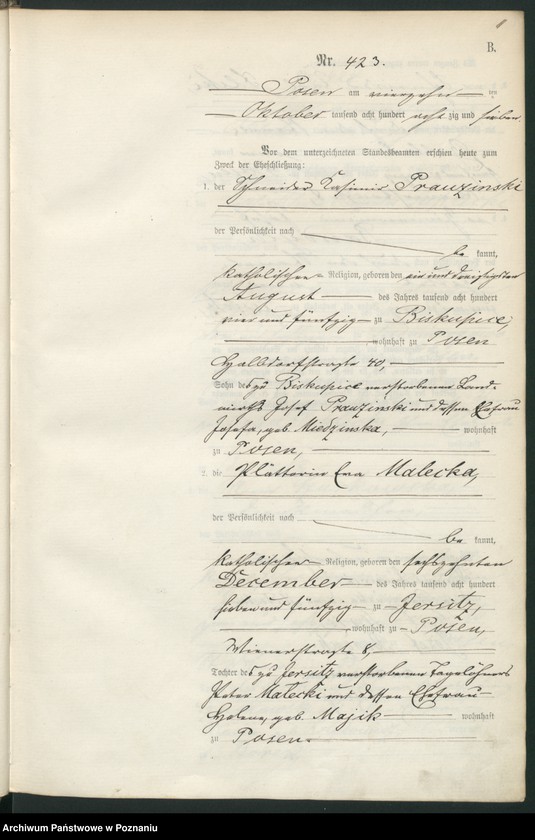 1
B.
Nr. 423.
Posen am vierzehn ten
Oktober tausend acht hundert acht zig und sieben
Vor dem unterzeichneten Standesbeamten erschien heute zum
Zweck der Eheschließung:
1. der Schneider Kasimir Pranzinski
der Persönlichkeit nach
be kannt,
katholischer Religion, geboren den ein und dreißigsten
August des Jahres tausend acht hundert
vier und fünfzig zu Biskupice,
wohnhaft zu Posen
Halbdorfstraße 40,
Sohn des zu Biskupice verstorbenen Land-
wirths Josef Pranzinski und dessen Ehefrau
Josefa, geb. Miedzinska, wohnhaft
zu Posen,
2. die Plätterin Eva Malecka,
der Persönlichkeit nach
be kannt,
katholischer Religion, geboren den sechszehnten
December des Jahres tausend acht hundert
sieben und fünfzig zu Jersitz,
wohnhaft zu Posen,
Wienerstraße 8,
Tochter des zu Jersitz verstorbenen Tagelöhners
Peter Malecki und dessen Ehefrau
Helene, geb. Majik wohnhaft
zu Posen.
Archiwum Państwowe w Poznaniu